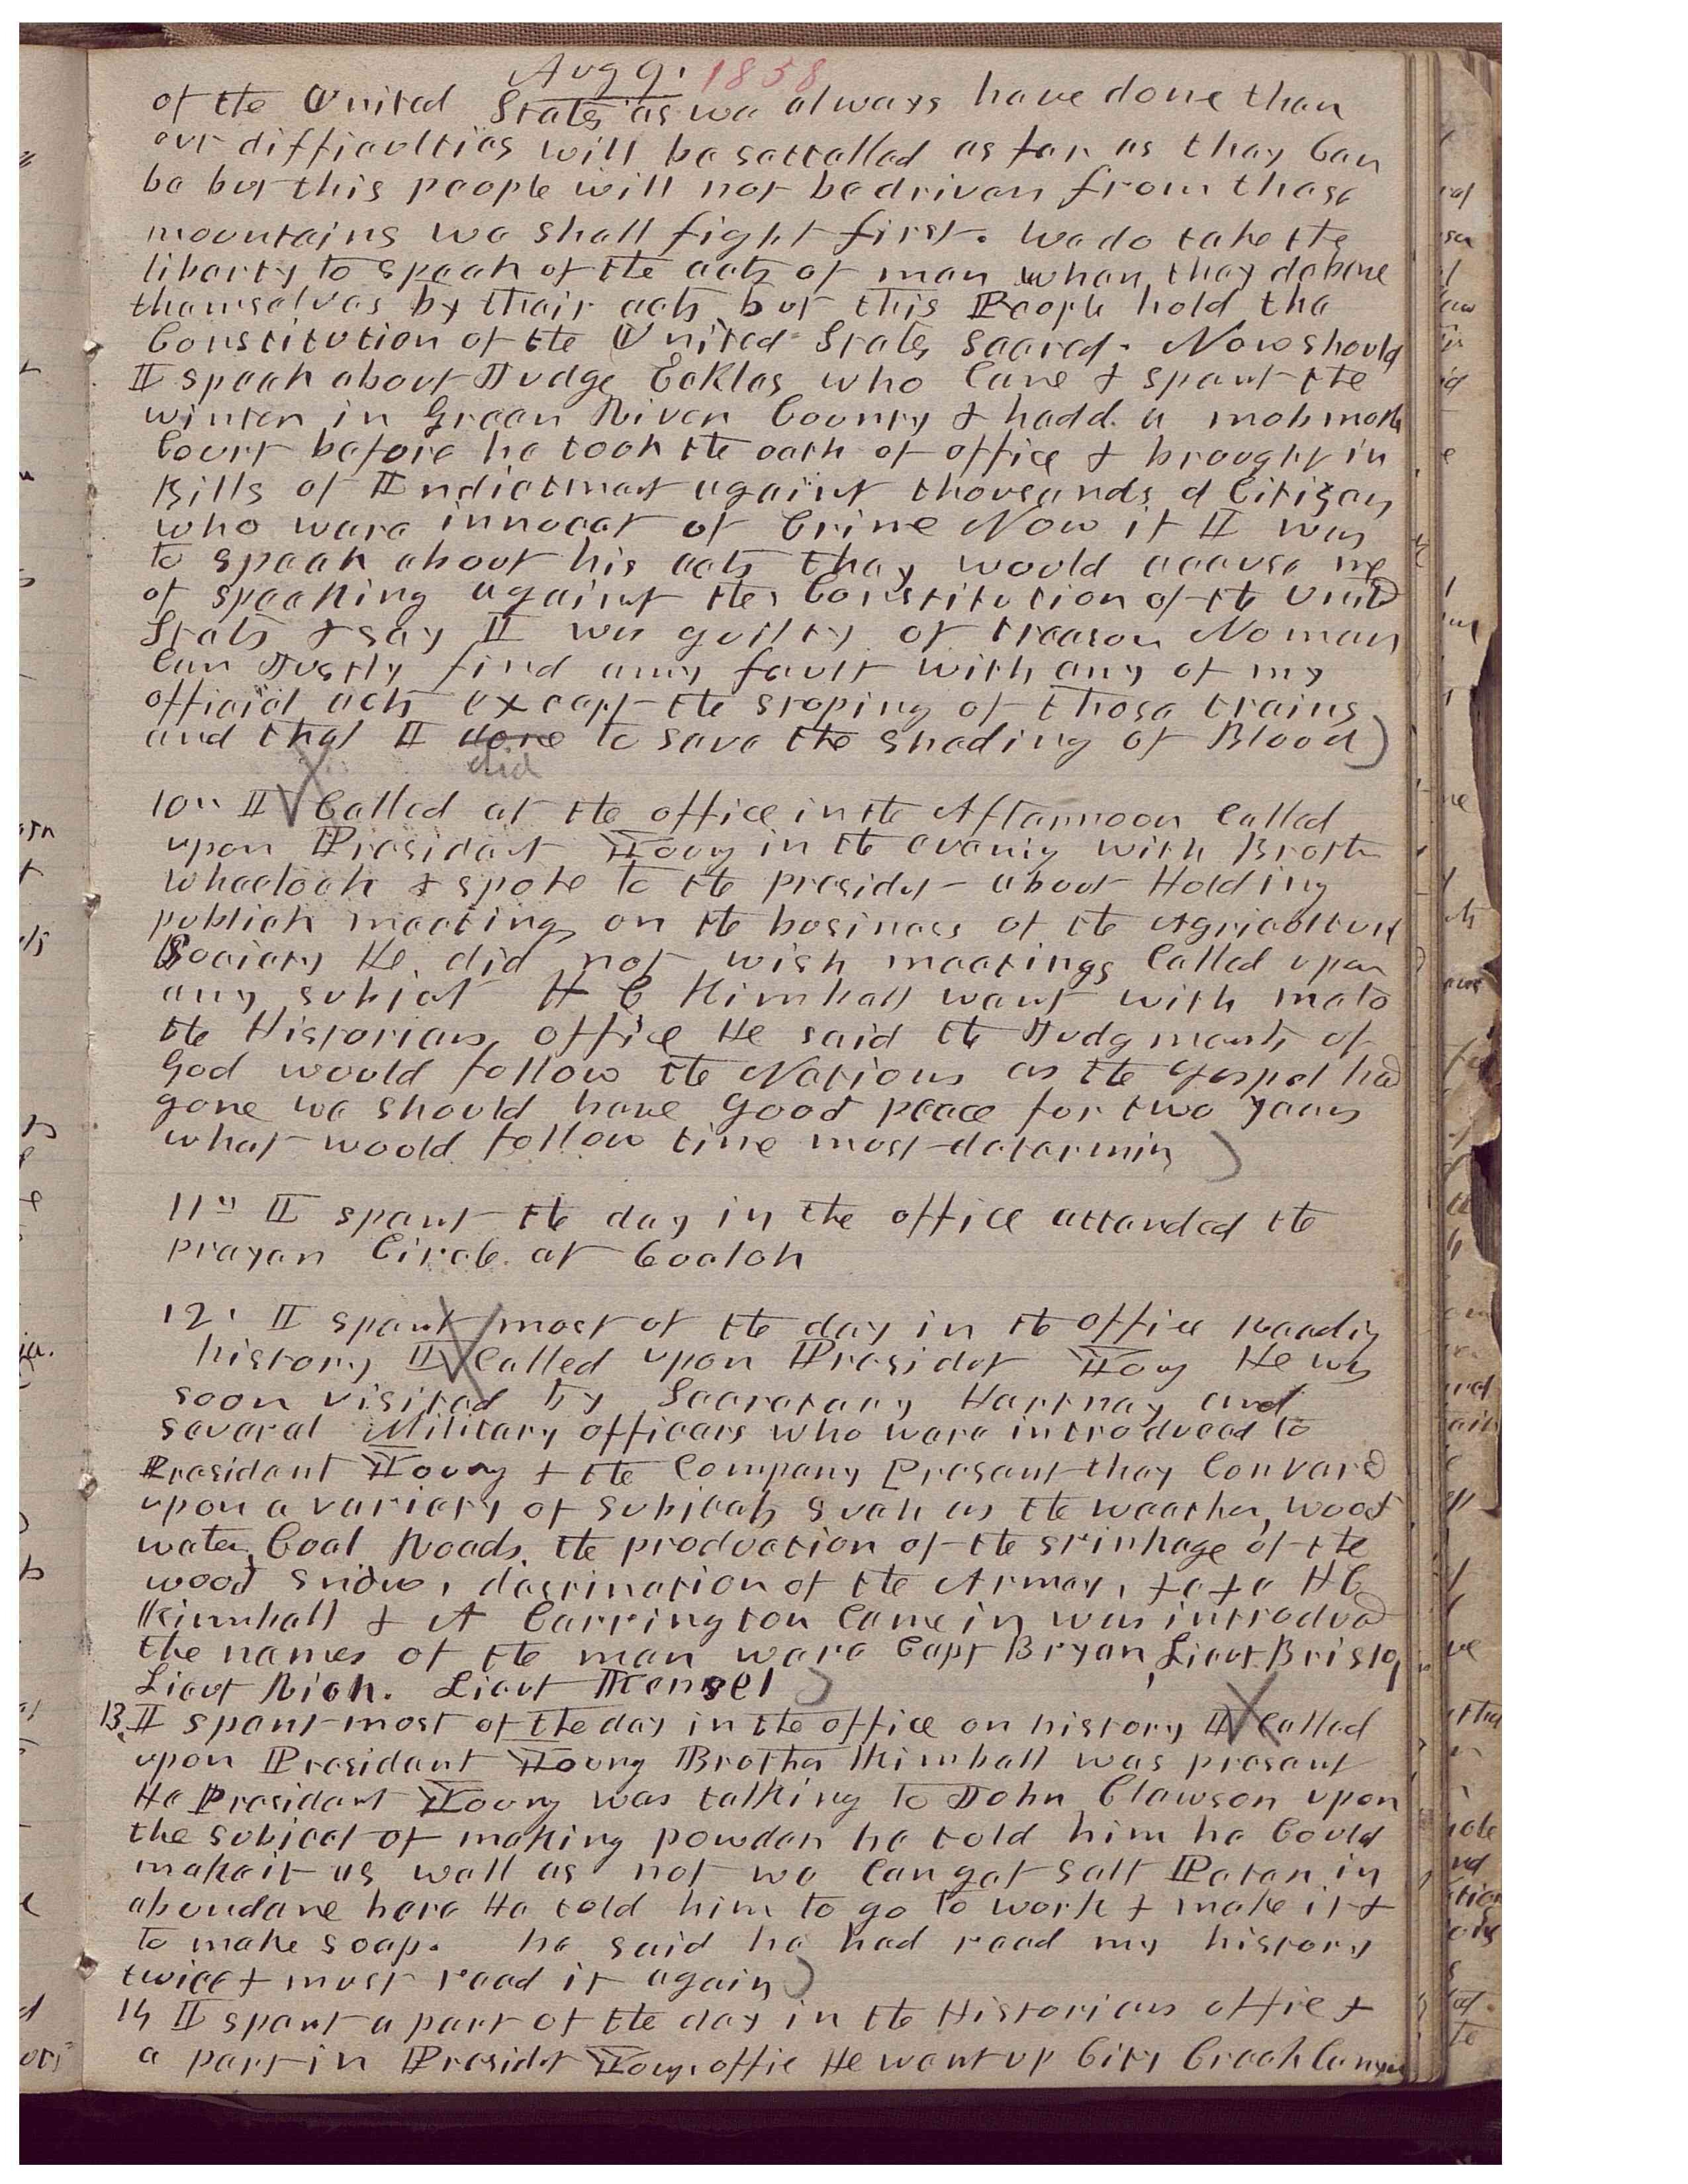 Aug 9. 1858
of the United States as we always have done then
our difficulties will be settelled as far as they Can
be but this people will not be driven from these
mountains we shall fight first. We do take the
liberty to speak of the acts of men when they debase
themselves by their acts but this People hold the
Constitution of the United States Sacred. Now should
I speak about Judge Eckles who Came & spent the
winter in Green River County & hadd a mob mock
Court before he took the oath of office & brought in
Bills of Indictment against thousands of Citizens
who were innocet of Crime Now if I was
to speak about his acts they would accuse me
of speaking against the Constitution of the United
States & say I was guilty of treason No man
Can Justly find any fault with any of my
official acts except the stoping of those trains
and that I done did to save the sheding of Blood)
10" I Called at the office in the Afternoon Called
upon President Young in the evening with Brother
Wheelock & spoke to the presidet about Holding
publick meetings on the business of the Agricultural
Society He did not wish meetings Called upon
any subject H C Kimball went with me to
the Historians office He said the Judgments of
God would follow the Nations as the Gospel had
gone we should have good peace for two years
what would follow time must determin)
11" I spent the day in the office attended the
prayer Circle at 6 oclok
12. I spent most of the day in the office Reading
history I Called upon Presidet Young He was
soon visited by Secretary Hartney and
several Military officers who were introduced to
President Young & the Company Present they Converd
upon a variety of subjects such as the weather, wood
water, Coal Roads, the production of the srinkage of the
wood snow, destination of the Army, &c &c H C
Kimball & A Carrington Came in was introdued
the names of the men were Capt Bryan, Lieut Bristo,
Lieut Rich. Lieut Kensel)
13. I spent most of the day in the office on history I Called
upon President Young Brother Kimball was present
He President Young was talking to John Clawson upon
the subject of making powder he told him he Could
make it as well as not we Can get Salt Peter in
abundane here He told him to go to work & make it &
to make soap. he said he had read my history
twice & must read it again)
14 I spent a part of the day in the Historians offic &
a part in Presidet Youngs offic He went up City Creek Canyon